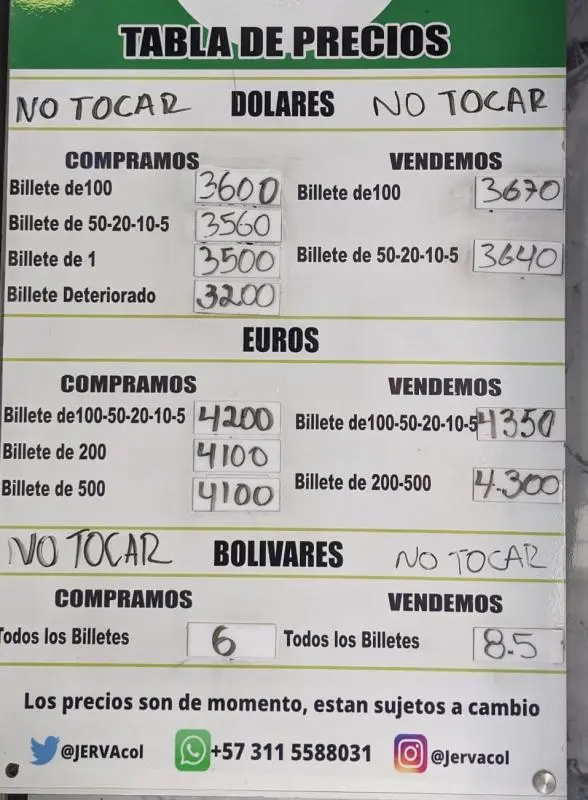 TABLA DE PRECIOS
NO TOCAR DOLARES NO TOCAR
COMPRAMOS VENDEMOS
Billete de100 3600 Billete de100 3670
Billete de 50-20-10-5 3560
Billete de 1 3500 Billete de 50-20-10-5 3640
Billete Deteriorado 3200
EUROS
COMPRAMOS VENDEMOS
Billete de100-50-20-10-5 4200 Billete de100-50-20-10-5 4350
Billete de 200 4100
Billete de 500 4100 Billete de 200-500 4.300
NO TOCAR BOLIVARES NO TOCAR
COMPRAMOS VENDEMOS
Todos los Billetes 6 Todos los Billetes 8.5
Los precios son de momento, estan sujetos a cambio
@JERVAcol +57 311 5588031 @Jervacol